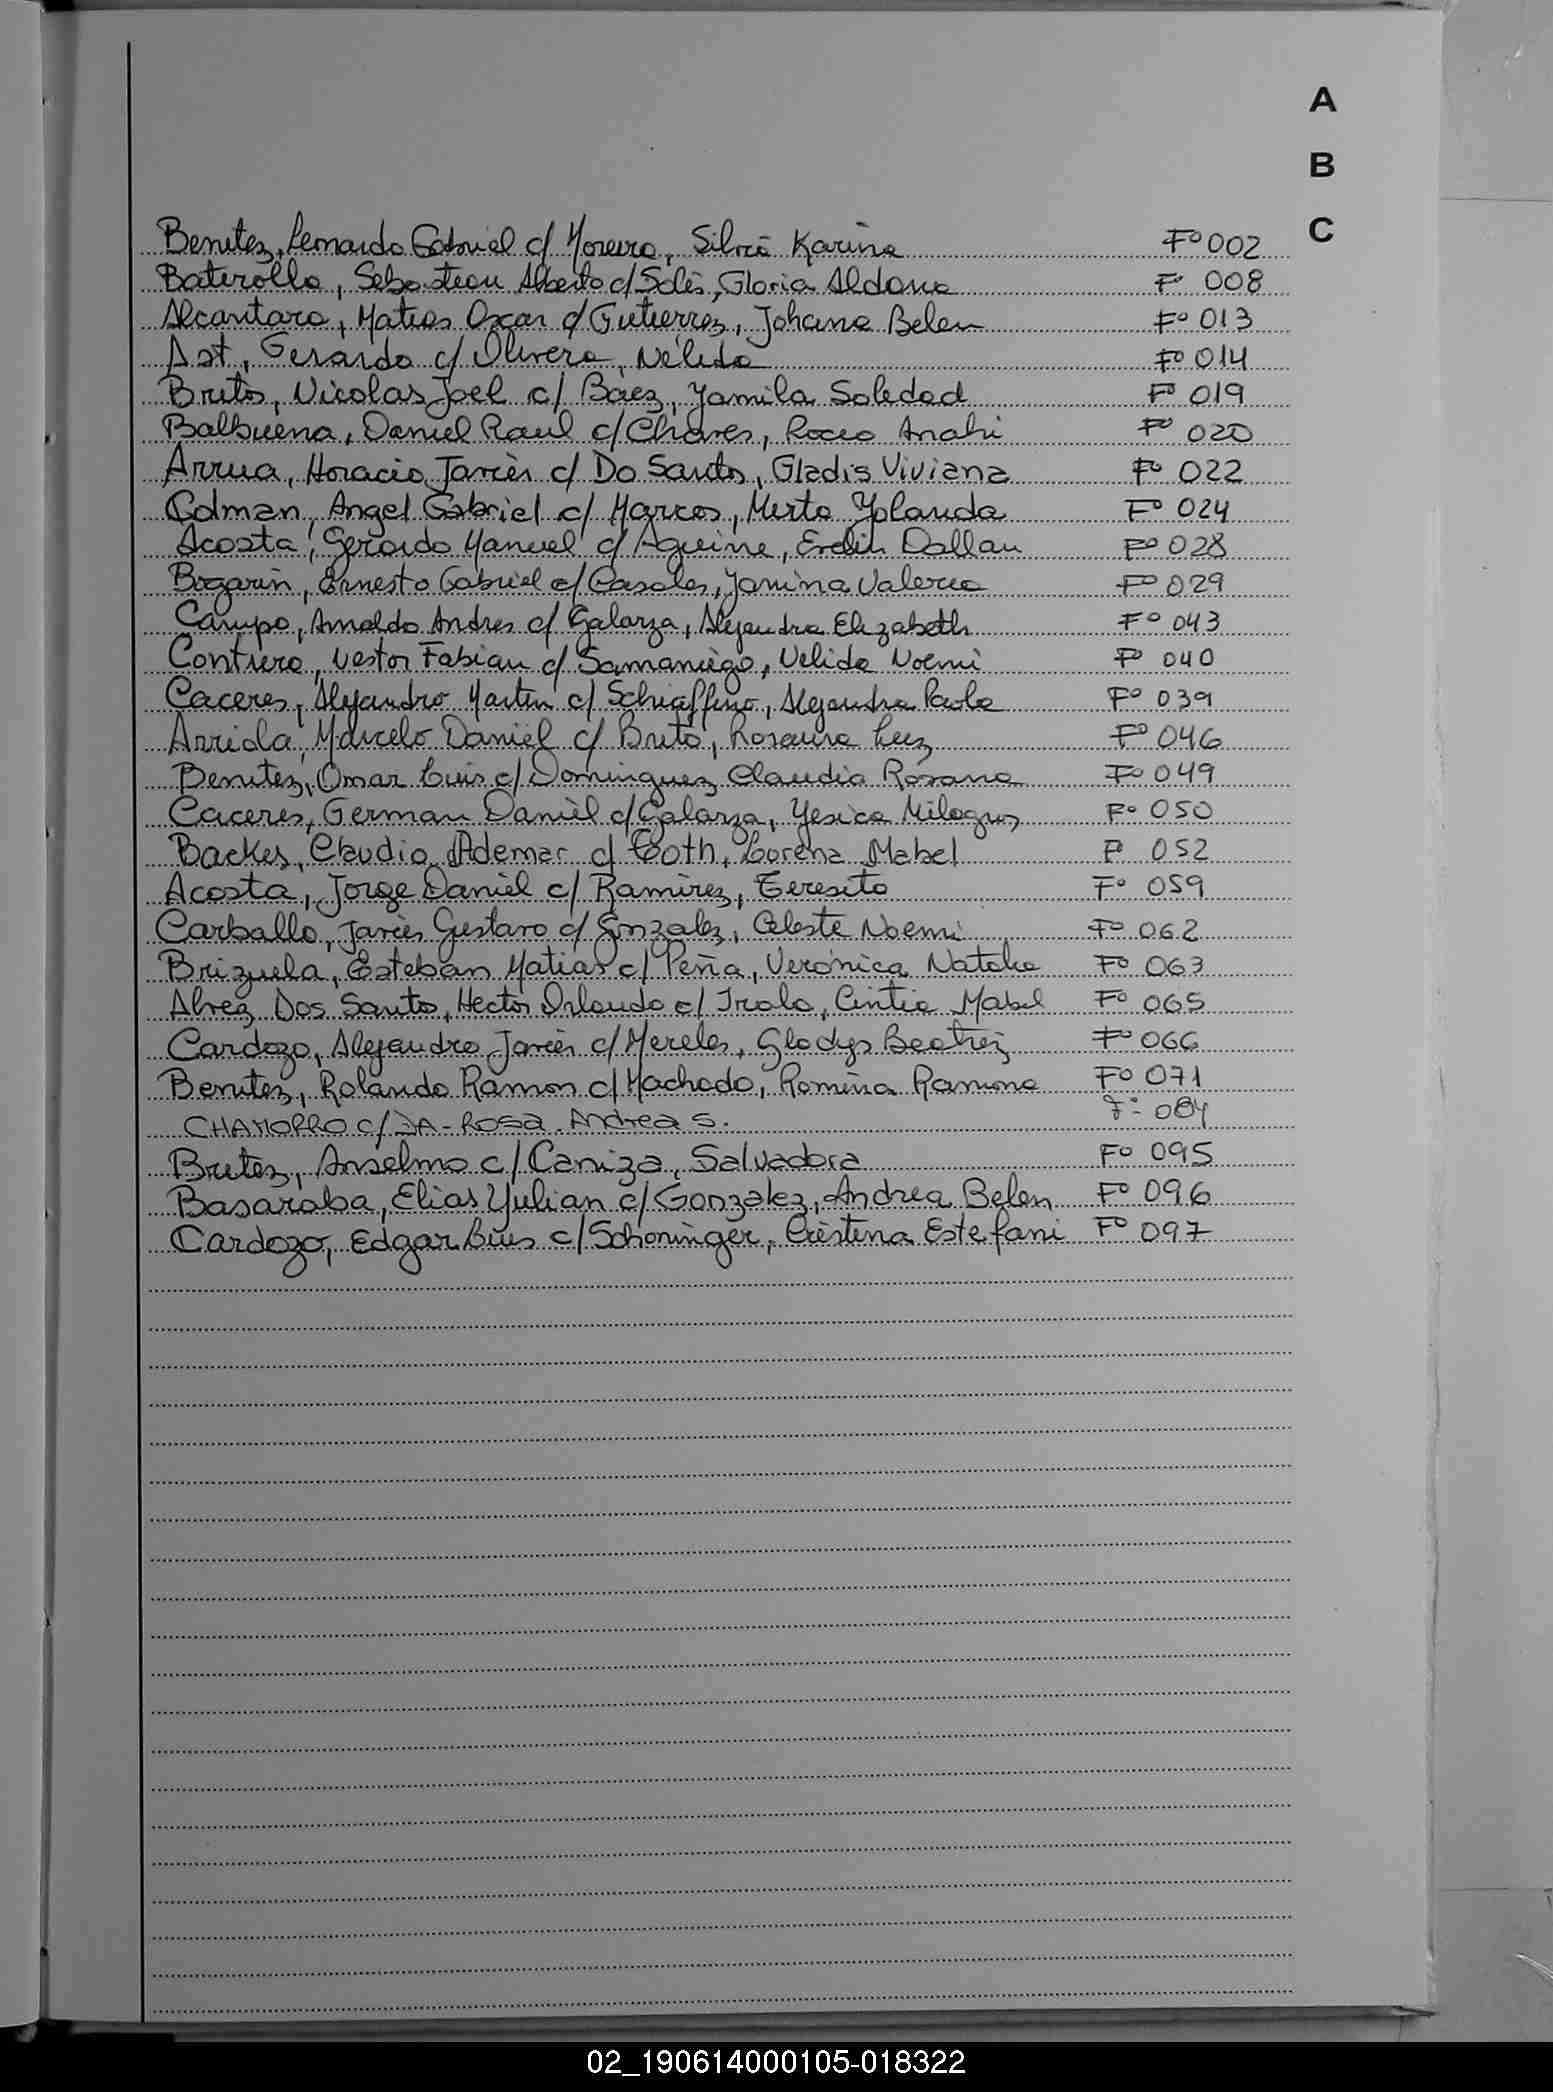 A
B
C
Benitez, Leonardo Gabriel c/ Moreira, Silvia Karina Fº 002
Baterollo, Sebastian Alberto c/ Solis, Gloria Aldana Fº 008
Alcantara, Matias Oscar c/ Gutierrez, Johana Belen Fº 013
Ast, Gerardo c/ Olivera, Nélida Fº 014
Brito, Nicolas Joel c/ Baez, Yamila Soledad Fº 019
Balbuena, Daniel Raul c/ Chaves, Rocio Anahi Fº 020
Arrua, Horacio Javier c/ Do Santos, Gladis Viviana Fº 022
Colman, Angel Gabriel c/ Marcos, Mirta Yolanda Fº 024
Acosta, Gerardo Manuel c/ Aguirre, Evelin Dallan Fº 028
Bogarin, Ernesto Gabriel c/ Casales, Yanina Valeria Fº 029
Campo, Arnaldo Andres c/ Galarza, Alejandra Elizabeth Fº 043
Contrera, Nestor Fabian c/ Samaniego, Nelida Noemi Fº 040
Caceres, Alejandro Martin c/ Schiaffino, Alejandra Paola Fº 039
Arriola, Marcelo Daniel c/ Brito, Rosaura Luz Fº 046
Benitez, Omar Luis c/ Dominguez Claudia Rosana Fº 049
Caceres, German Daniel c/ Galarza, Yesica Milagros Fº 050
Backes, Claudio Ademar c/ Toth, Lorena Mabel Fº 052
Acosta, Jorge Daniel c/ Ramirez, Teresita Fº 059
Carballo, Javier Gustavo c/ Gonzalez, Celeste Noemi Fº 062
Brizuela, Esteban Matias c/ Peña, Verónica Natalia Fº 063
Alvez Dos Santo, Hector Orlando c/ Irala, Cintia Mabel Fº 065
Cardozo, Alejandro Javier c/ Mereles, Gladys Beatriz Fº 066
Benitez, Rolando Ramon c/ Machado, Romina Ramona Fº 071
CHAMORRO c/ DA-ROSA Andrea S. Fº 084
Britez, Anselmo c/ Caniza, Salvadora Fº 095
Basaraba, Elias Yulian c/ Gonzalez, Andrea Belen Fº 096
Cardozo, Edgar Luis c/ Schoninger, Cristina Estefani Fº 097
02_190614000105-018322